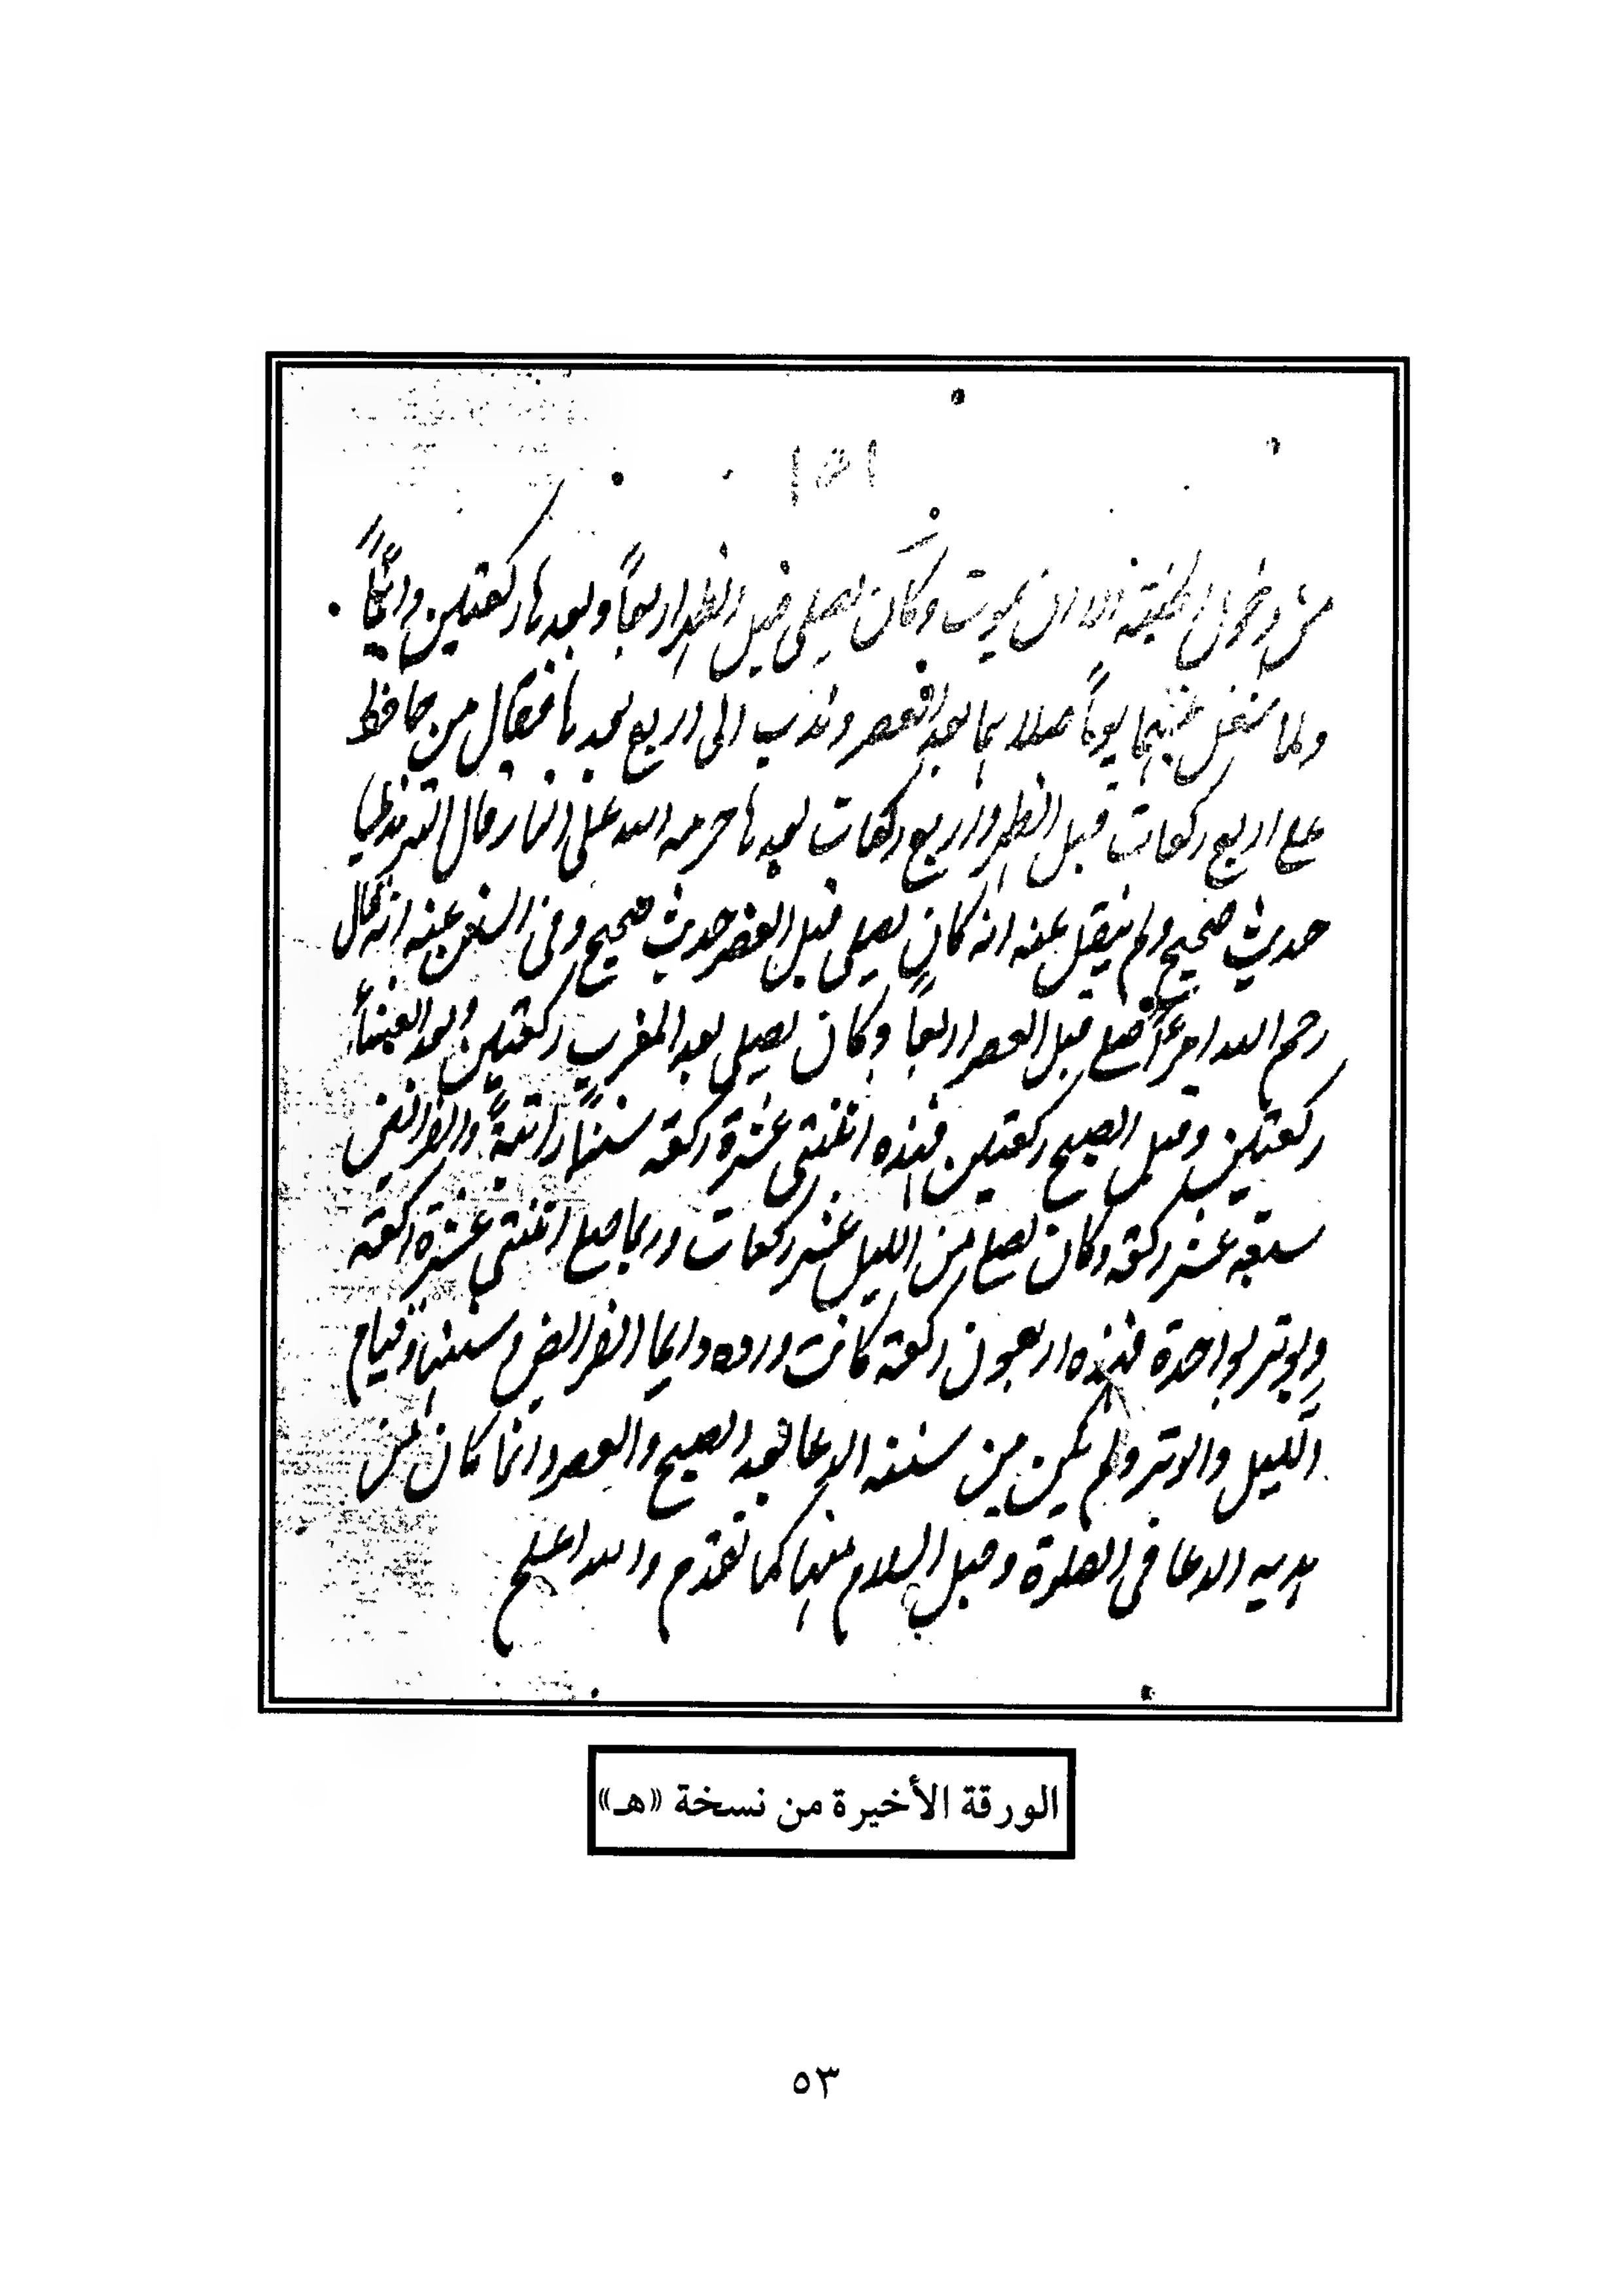 ١٥١
من دخول الجنة الا ان يموت وكان يصلى قبل الظهر اربعاً وبعدها ركعتين دائماً
ولما شغل عنهما يوماً صلاهما بعد العصر وندب الى اربع بعدها فقال من حافظ
على اربع ركعات قبل الظهر واربع ركعات بعدها حرمه الله على النار قال الترمذى
حديث صحيح ولم ينقل عنه انه كان يصلى قبل العصر حديث صحيح وفى السنن عنه انه قال
رحم الله امرءاً صلى قبل العصر اربعاً وكان يصلى بعد المغرب ركعتين وبعد العشاء
ركعتين وقبل الصبح ركعتين فهذه اثنتى عشرة ركعة سنناً راتبةً والفرائض
سبعة عشر ركعة وكان يصلى من الليل عشر ركعات وربما صلى اثنتى عشرة ركعة
ويوتر بواحدة فهذه اربعون ركعة كانت ورده دايما الفرائض وسننها وقيام
الليل والوتر ولم يكن من سننه الدعا بعد الصبح والعصر وانما كان من
هديه الدعا فى الصلوة وقبل السلام منها كما تقدم والله اعلم
الورقة الأخيرة من نسخة «هـ»
٥٣